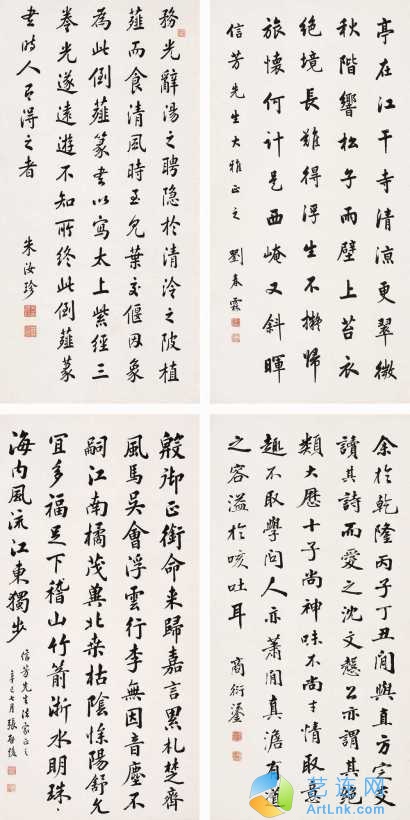 亭在江干寺清涼更翠微
秋階響松子雨壁上苔衣
絕境長難得浮生不擬歸
旅懷何計是西崦又斜暉
信芳先生大雅正之
劉春霖
務光辭湯之聘隐於清泠之陂植
薤而食清風時至見葉交偃因象
為此倒薤篆書以寫太上紫經三
卷光遂遠遊不知所終此倒薤篆
書時人得之者
朱汝珍
余於乾隆丙子丁丑間與直方定交
讀其詩而愛之沈文慤公亦謂其絕
類大曆十子尚神味不尚才情取意
趣不取學問人亦蕭閒真澹有道
之容溢於咳吐耳
商衍鎏
殷御正銜命来歸嘉言累札楚齊
風馬吳會浮雲行李無因音塵不
嗣江南橘茂冀北桑枯陰慘陽舒允
宜多福足下稽山竹箭浙水明珠
海內風流江東獨步
信芳先生法家正之
七月張啟後
艺连网